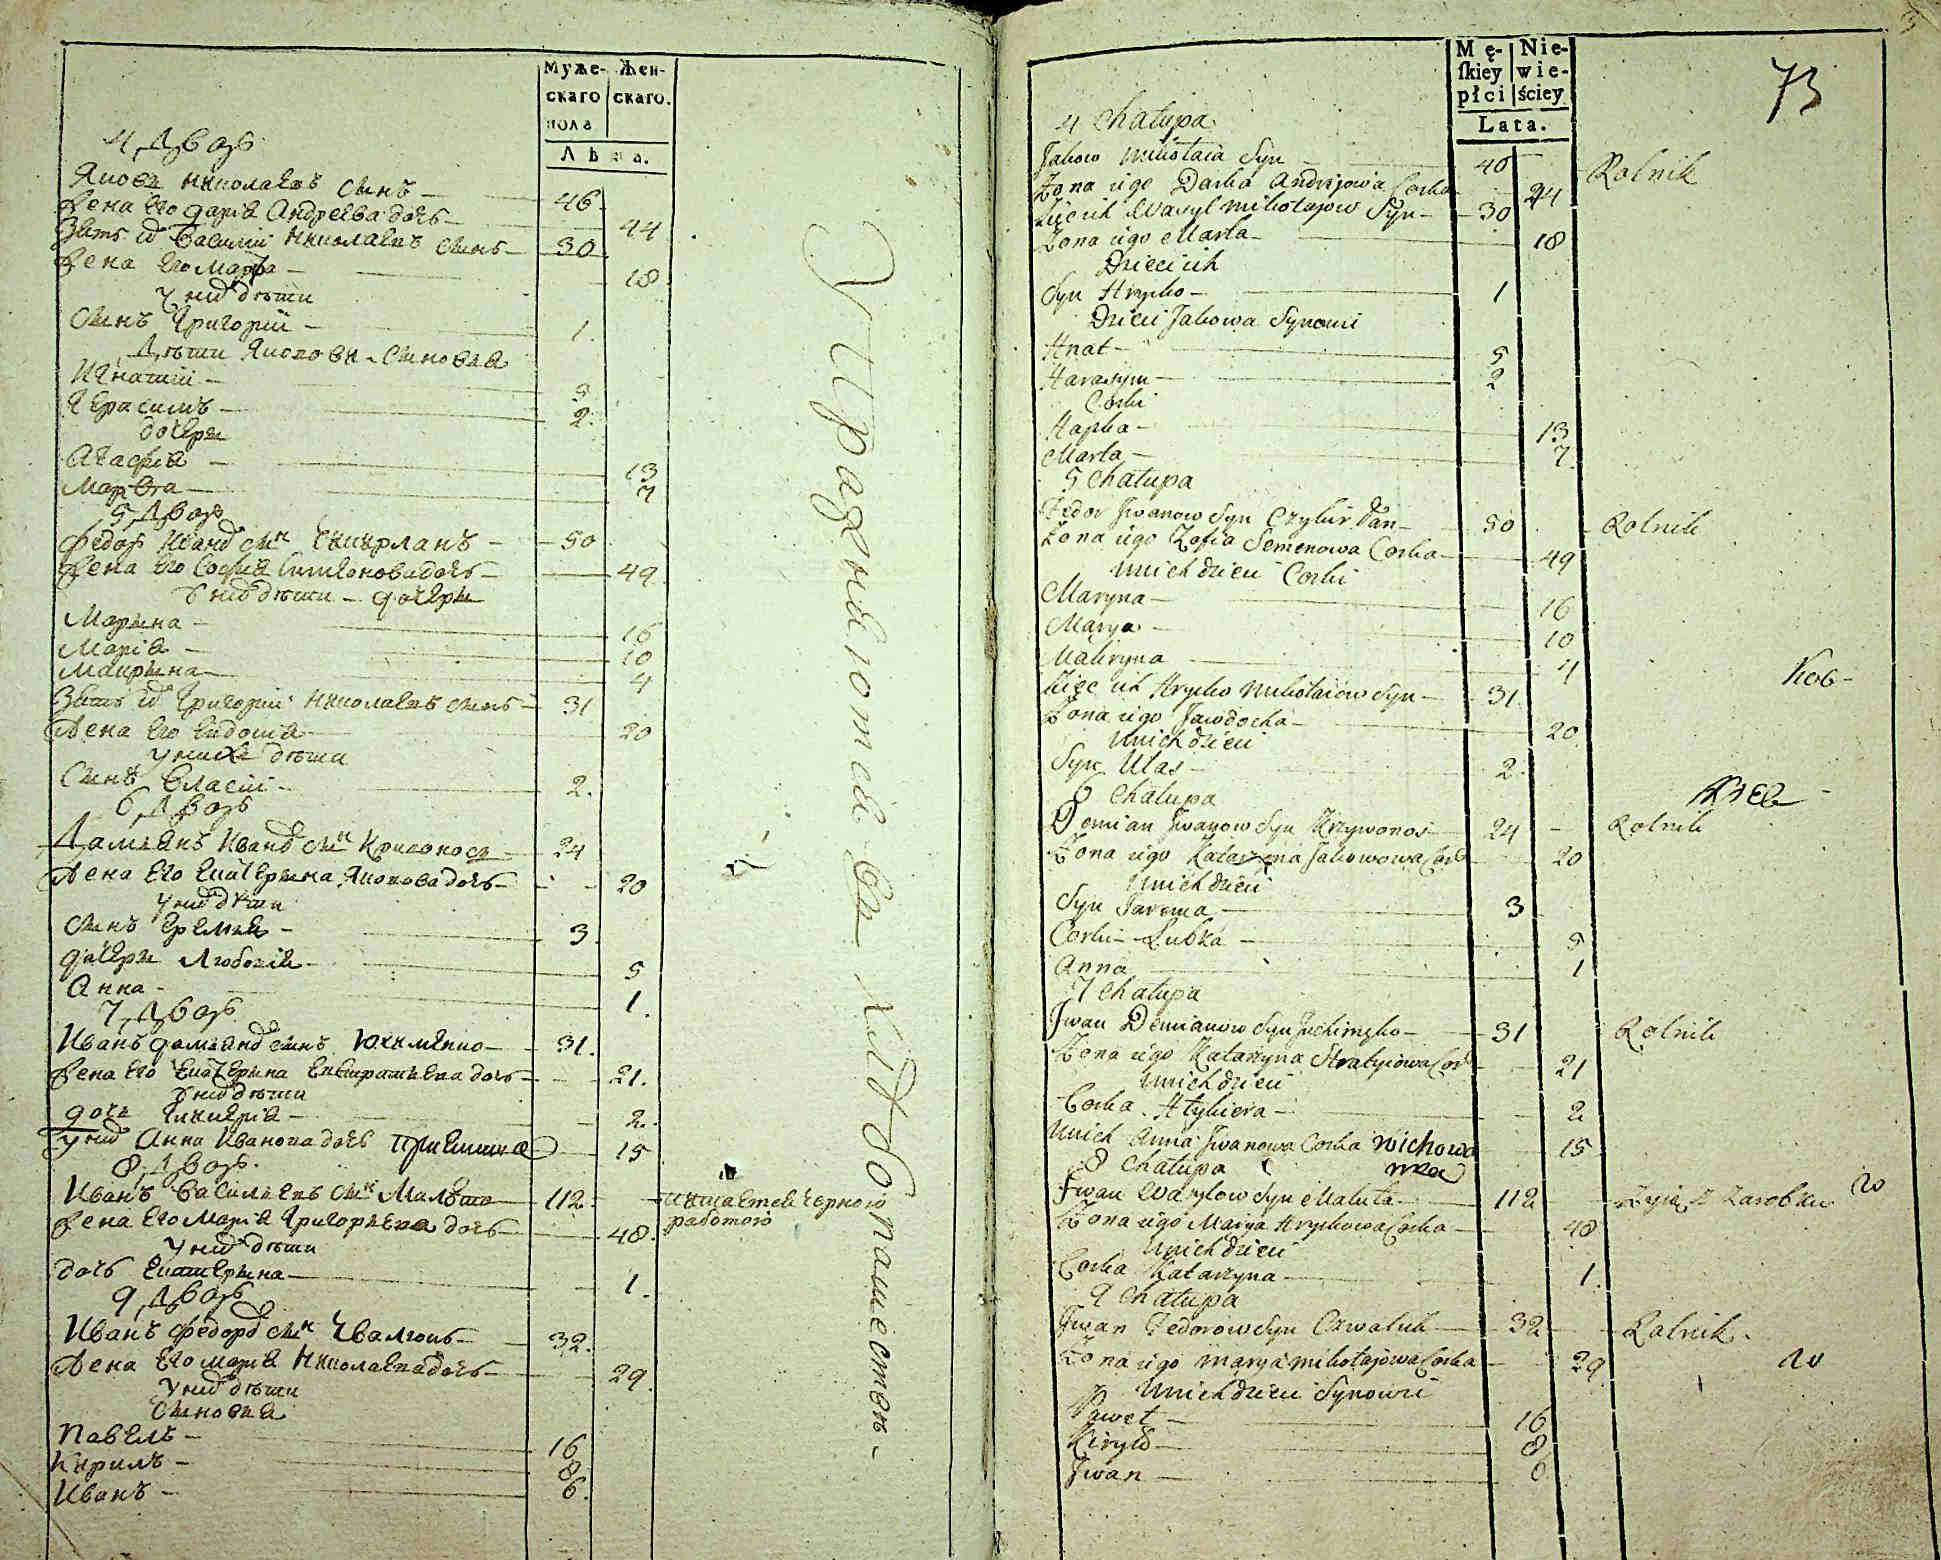 Муже-
скаго
пола
Жен-
скаго.
Лѣта.
4, Дворъ
Яковъ Николаевъ сынъ — 46
Жена его Дарія Андреева дочь — 44
Зять их Василій Николаевъ сынъ — 30
Жена его Марфа — 18
У них дѣти
Сынъ Григорій — 1.
Дѣти Якововы Сыновья
Игнатій — 5
Герасимъ — 2.
дочери
Агафія — 13
Марфа — 7
5, Дворъ
Федор Иванов сын — 50
Жена его Софія Симеонова дочь — 49
У них дѣти — дочери
Марина — 16
Марія — 10
Маврина — 4
Зять их Григорій Николаевъ сынъ — 31
Жена его Евдокія — 20
У них дѣти
Сынъ Власій — 2.
6, Дворъ
Дамиянъ Иванов сын Кривонось — 24
Жена его Екатерина Яковова дочь — 20
У них дѣти
Сынъ Еремия — 3.
дочери Любовія — 5
Анна — 1.
7, Дворъ
Иванъ Дамианов сынъ Юхименко — 31.
Жена его Екатерина Евстратиева дочь — 21.
У них дѣти
дочь Гликерія — 2.
У них Анна Иванова дочь приемышна — 15
8, Дворъ.
Иванъ Василиевъ сын Малюта — 112.
Жена его Марія Григориева дочь — 48.
У них дѣти
дочь Екатерина — 1.
9, Дворъ
Иванъ Федоров сын Чвалюкъ — 32.
Жена его Марія Николаева дочь — 29.
У них дѣти
Сыновья
Павелъ — 16
Кирилъ — 8
Иванъ — 6.
Упражняются в хлѣбопашествѣ —
питается черною
работою
Mę-
skiey
płci
Nie-
wie-
ściey
Lata.
73
4 Chałupa
Jakow Mikołaia Syn — 46 Rolnik
Żona iego Darka Andrijowa Corka — 44
Zięć ich Wasyl Mikołajow Syn — 30
Żona iego Marta — 18
Dzieci ich
Syn Hryćko — 1
Dzieci Jakowa Synowi
Hnat — 5
Harasym — 2
Corki
Hapka — 13
Marta — 7.
5 Chałupa
Fedor Iwanow Syn — 50 Rolnik
Żona iego Zofia Semenowa Corka — 49
U nich dzieci Corki
Maryna — 16
Marya — 10
Makryna — 4
Zięć ich Hryćko Mikołaiow Syn — 31.
Żona iego Jawdocha — 20.
U nich dzieci
Syn Ułas — 2.
6 Chałupa
Demian Iwanow Syn Krzywonos — 24 Rolnik
Żona iego Katarzyna Jakowowa Cork — 20
U nich dzieci
Syn Jarema — 3
Corki — Lubka — 5
Anna — 1
7 Chałupa
Iwan Demianow Syn Juchimęko — 31 Rolnik
Żona iego Katarzyna Stratijowa Cork — 21
U nich dzieci
Corka Hlykiera — 2
U nich Anna Iwanowa Corka wichowa
nka — 15
8 Chałupa
Iwan Wasylow Syn Maluta — 112 Żyje z Zarobku
Żona iego Marya Hryćkowa Corka — 48
U nich dzieci
Corka Katarzyna — 1.
9 Chałupa
Iwan Fedorow Syn Czwaluk — 32 Rolnik.
Żona iego Marya Mikołajowa Corka — 29
U nich dzieci Synowie
Paweł — 16
Kiryło — 8
Iwan — 6